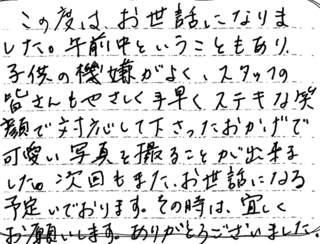 この度は、お世話になりま
した。午前中ということもあり、
子供の機嫌がよく、スタッフの
皆さんもやさしく手早く、ステキな笑
顔で対応して下さったおかげで
可愛い写真を撮ることが出来ま
した。次回もまた、お世話になる
予定でおります。その時は、宜しく
お願いします。ありがとうございました。